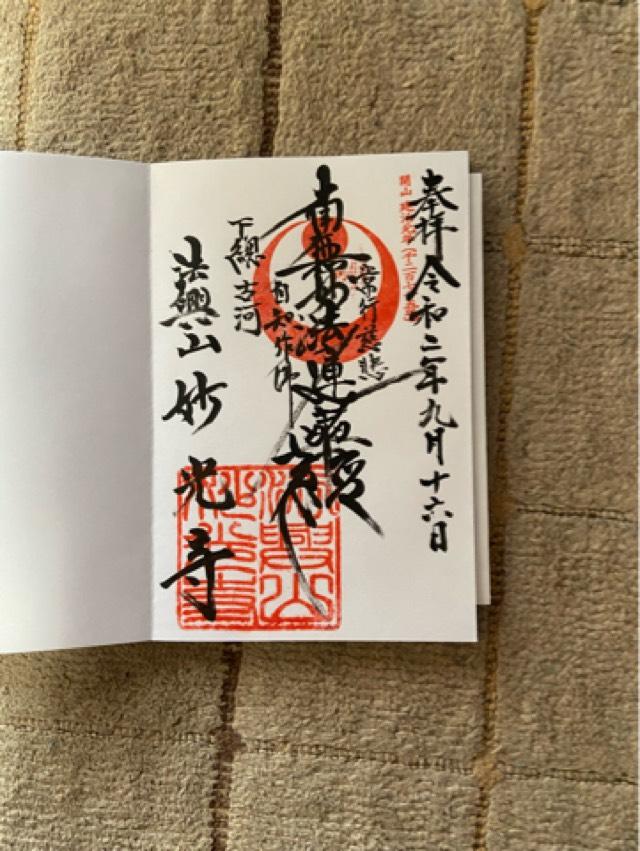 奉拝 令和二年九月十六日
南無妙法蓮華経
常行慈悲
自知作佛
下總古河
法興山妙光寺